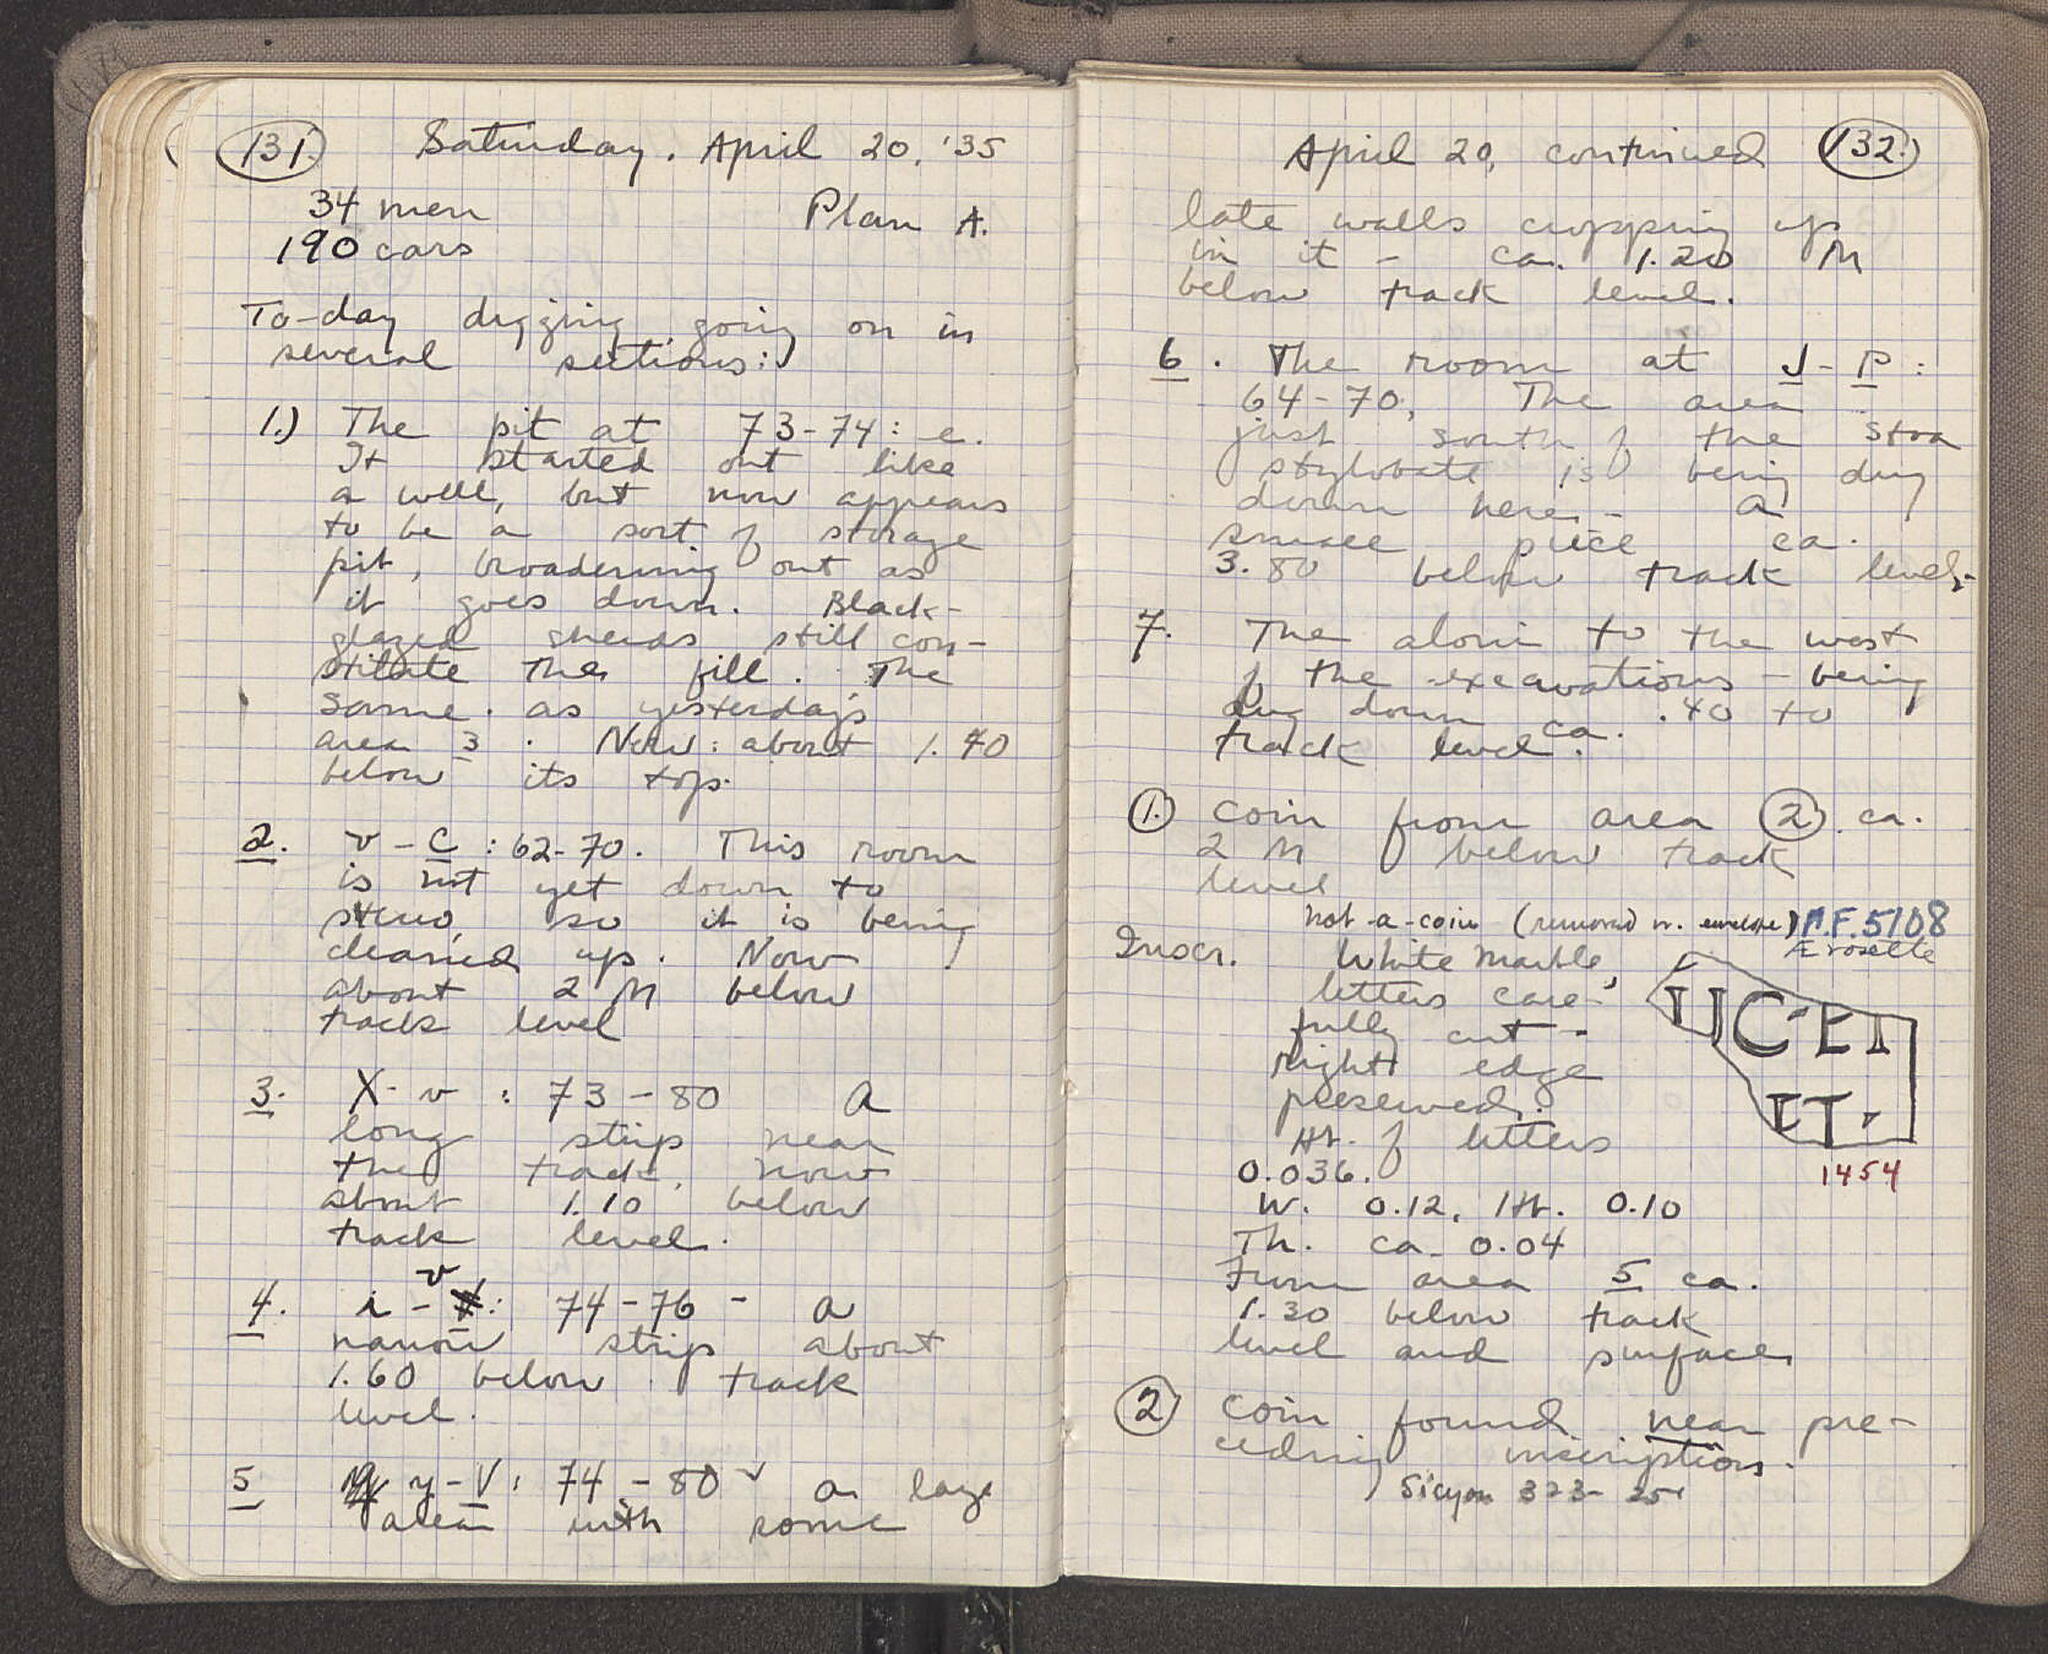 131.
Saturday. April 20, '35
34 men
Plan A.
190 cars
To-day digging going on in
several sections:
1.) The pit at 73-74: e.
It started out like
a well, but now appears
to be a sort of storage
pit, broadening out as
it goes down. Black-
glazed sherds still con-
stitute the fill. The
same as yesterday's
area 3. Now: about 1.40
below its top.
2. v - C : 62-70. This room
is not yet down to
stereo, so it is being
cleaned up. Now
about 2 M below
track level
3. X - v : 73-80 A
long strip near
the track, now
about 1.10 below
track level.
4. i - v : 74-76 - a
narrow strip about
1.60 below track
level.
5 y - V : 74-80 a large
area with some
April 20, continued
132.
late walls cropping up
in it - ca. 1.20 M
below track level.
6. The room at J - P :
64-70, The area
just south of the Stoa
stylobate is being dug
down here - a
small piece ca.
3.80 below track level.
7. The aloni to the west
of the excavations - being
dug down ca. .40 to
track level.
1. Coin from area 2. ca.
2 M below track
level
not-a-coin (removed w. envelope) M.F. 5108
rosette
Inscr. White Marble,
letters care-
fully cut -
right edge
preserved.
Ht. of letters
0.036.
W. 0.12. Ht. 0.10
Th. ca. 0.04
From area 5 ca.
1.30 below track
level and surface
ΙϹ·ΕΙ
ΙΤ·
1454
2 Coin found near pre-
ceding inscription.
Sicyon 323-251